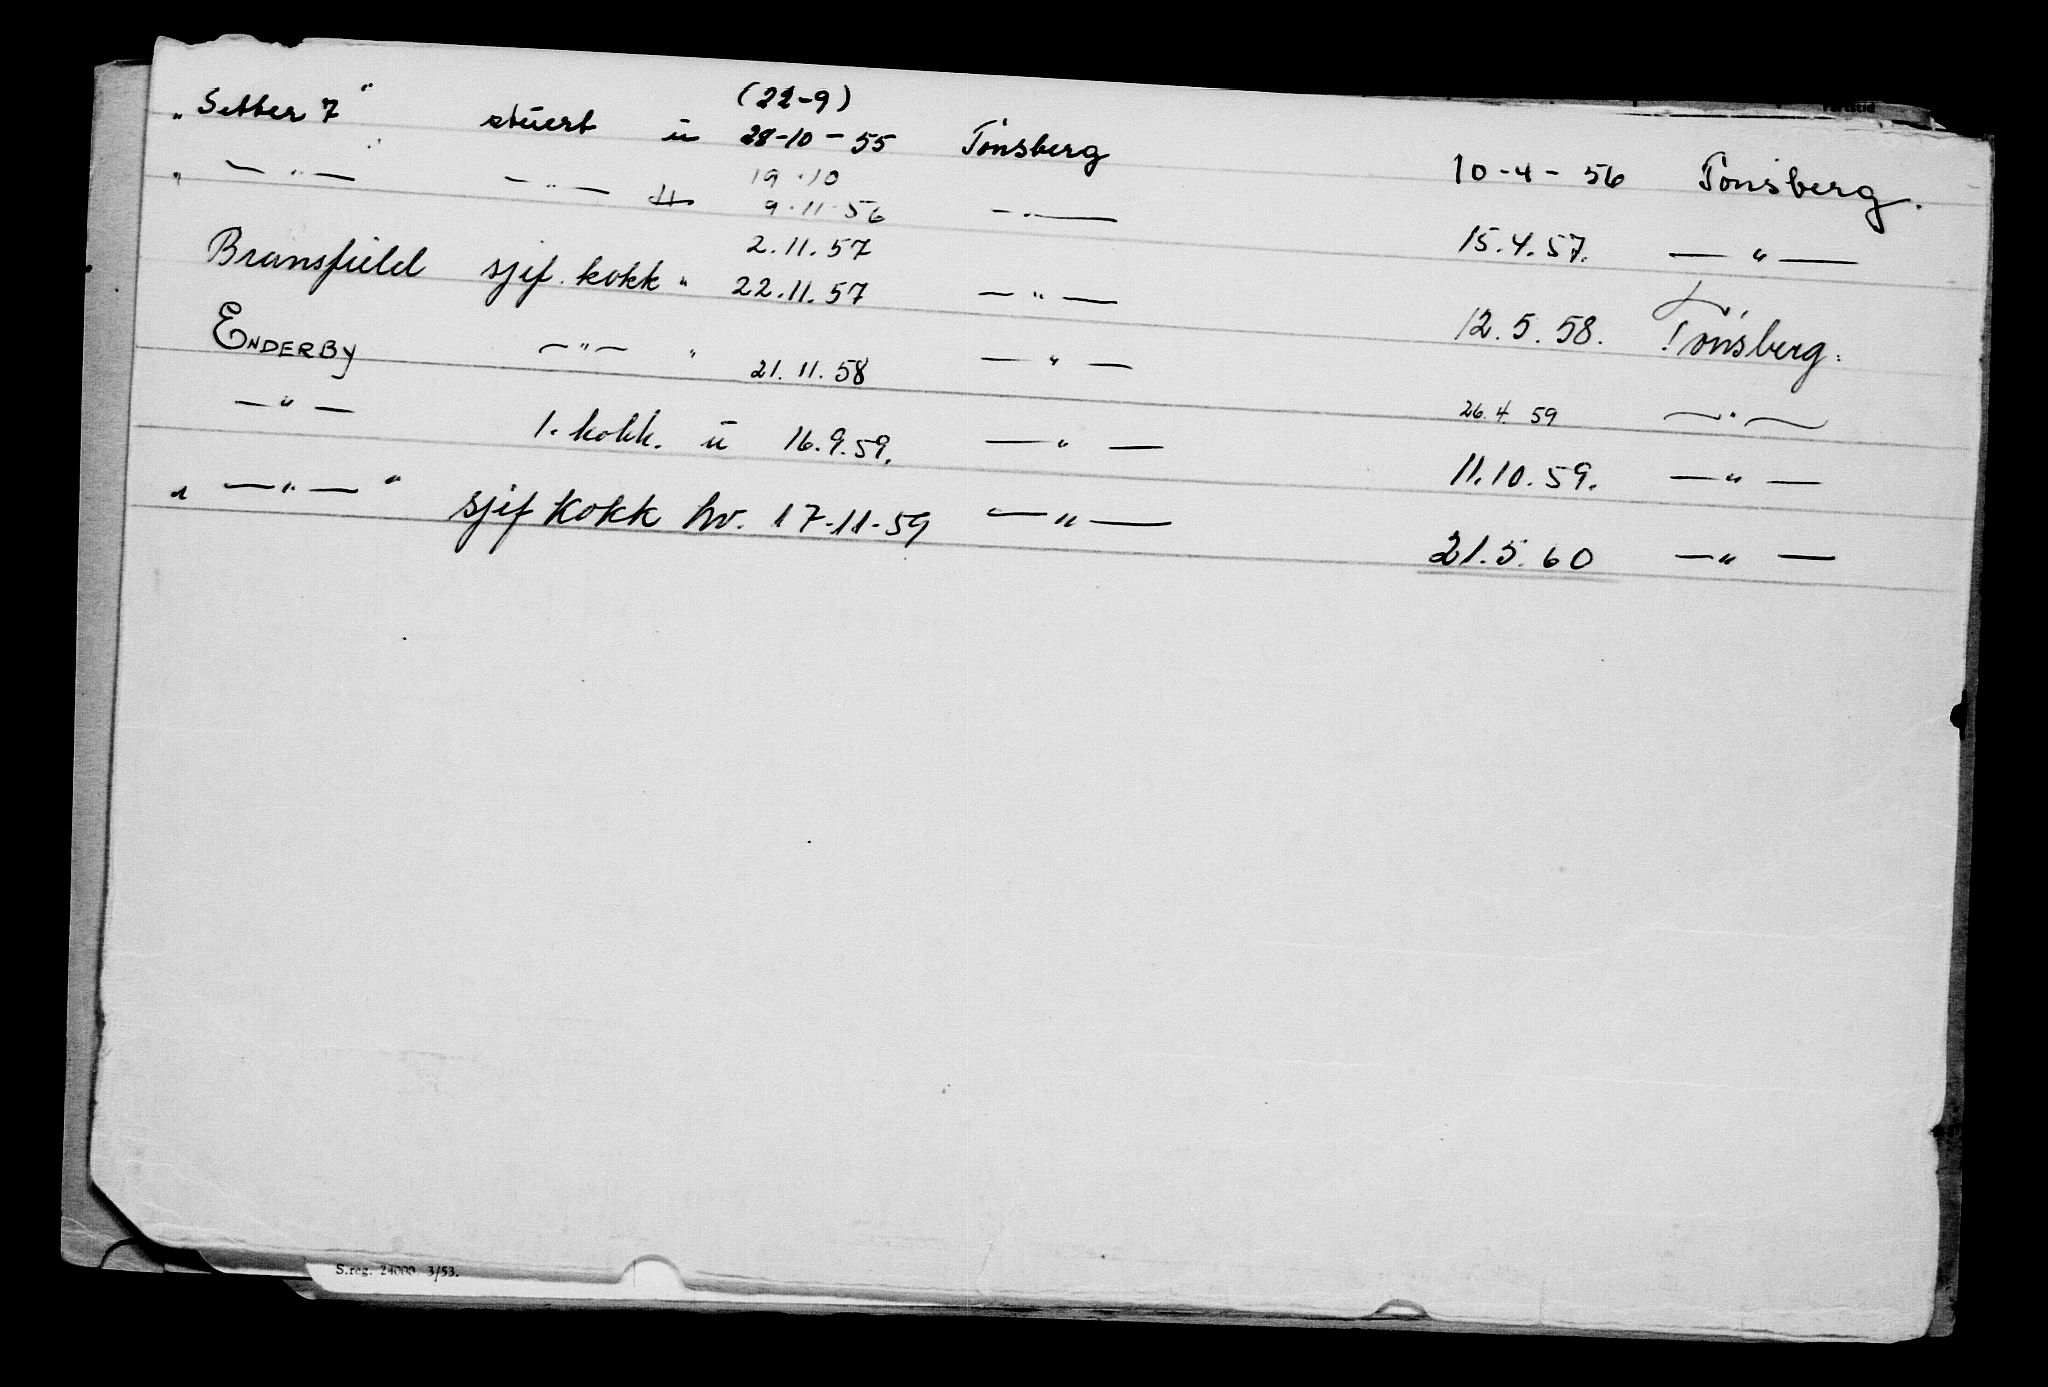 (22-9)
„Setter 7" stuert u 28-10-55 Tönsberg 10-4-56 Tönsberg.
19.10
„ — " — — " — 9.11.56 — " — 15.4.57. — " —
2.11.57
Bransfield sjef. kokk " 22.11.57 — " — 12.5.58. Tönsberg.
ENDERBY — " — " 21.11.58 — " — 26.4.59 — " —
— " — 1. kokk. u 16.9.59. — " — 11.10.59. — " —
„ — " — " sjef kokk hv. 17-11-59 — " — 21.5.60 — " —
S.reg. 24000 3/53.